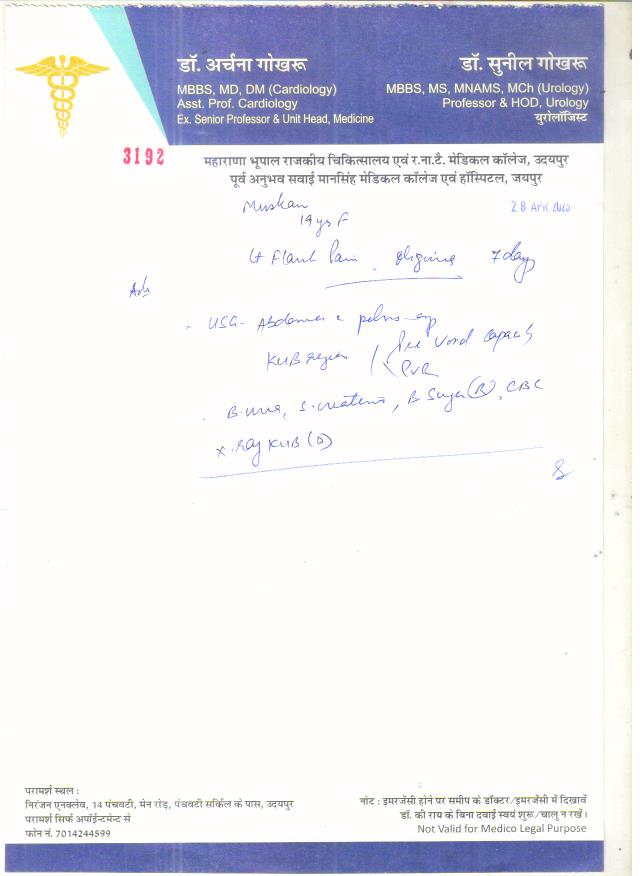 डॉ. अर्चना गोखरू
MBBS, MD, DM (Cardiology)
Asst. Prof. Cardiology
Ex. Senior Professor & Unit Head, Medicine
डॉ. सुनील गोखरू
MBBS, MS, MNAMS, MCh (Urology)
Professor & HOD, Urology
युरोलॉजिस्ट
3192
महाराणा भूपाल राजकीय चिकित्सालय एवं र.ना.टै. मेडिकल कॉलेज, उदयपुर
पूर्व अनुभव सवाई मानसिंह मेडिकल कॉलेज एवं हॉस्पिटल, जयपुर
Muskan
28 APR 2025
19 yrs F
Lt Flank Pain 7 days
Adv
USG- Abdomen & pelvis
KUB region
Pre Void Capacity
PVR
B. urea, S. creatinine, B Sugar (R), CBC
X. Ray KUB (D)
परामर्श स्थल :
निरंजन एनक्लेव, 14 पंचवटी, मेन रोड़, पंचवटी सर्किल के पास, उदयपुर
परामर्श सिर्फ अपॉईन्टमेन्ट से
फोन नं. 7014244599
नोट : इमरजेंसी होने पर समीप के डॉक्टर/इमरजेंसी में दिखावें
डॉ. की राय के बिना दवाई स्वयं शुरू/चालु न रखें।
Not Valid for Medico Legal Purpose